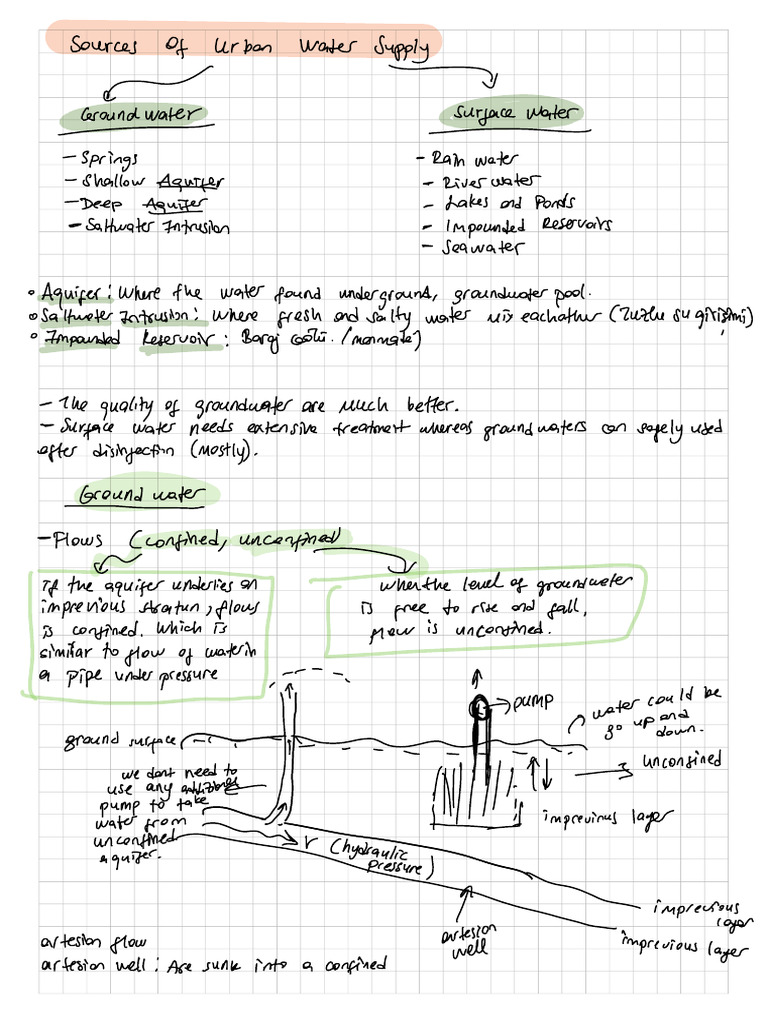 Sources Of Urban Water Supply
Groundwater
Surface Water
- Springs
- Shallow Aquifer
- Deep Aquifer
- Saltwater Intrusion
- Rain water
- River water
- Lakes and Ponds
- Impounded Reservoirs
- Seawater
• Aquifer: Where the water found underground, groundwater pool.
• Saltwater Intrusion: Where fresh and salty water mix eachather (Tuzlu su girişimi)
• Impounded Reservoir: Baraj (manmade)
- The quality of groundwater are much better.
- Surface water needs extensive treatment whereas groundwaters can safely used
after disinfection (mostly).
Ground water
- Flows (confined, unconfined)
If the aquifer underlies an
imprevious stratun, flows
is confined. Which is
similar to flow of water in
a pipe under pressure
when the level of groundwater
is free to rise and fall,
flow is unconfined.
pump
water could be
go up and
down.
ground surface
we dont need to
use any
pump to take
water from
unconfined
aquifer.
unconfined
imprevious layer
V (hydraulic
pressure)
artesian
well
imprevious
layer
imprevious layer
artesian flow
artesian well: Are sunk into a confined